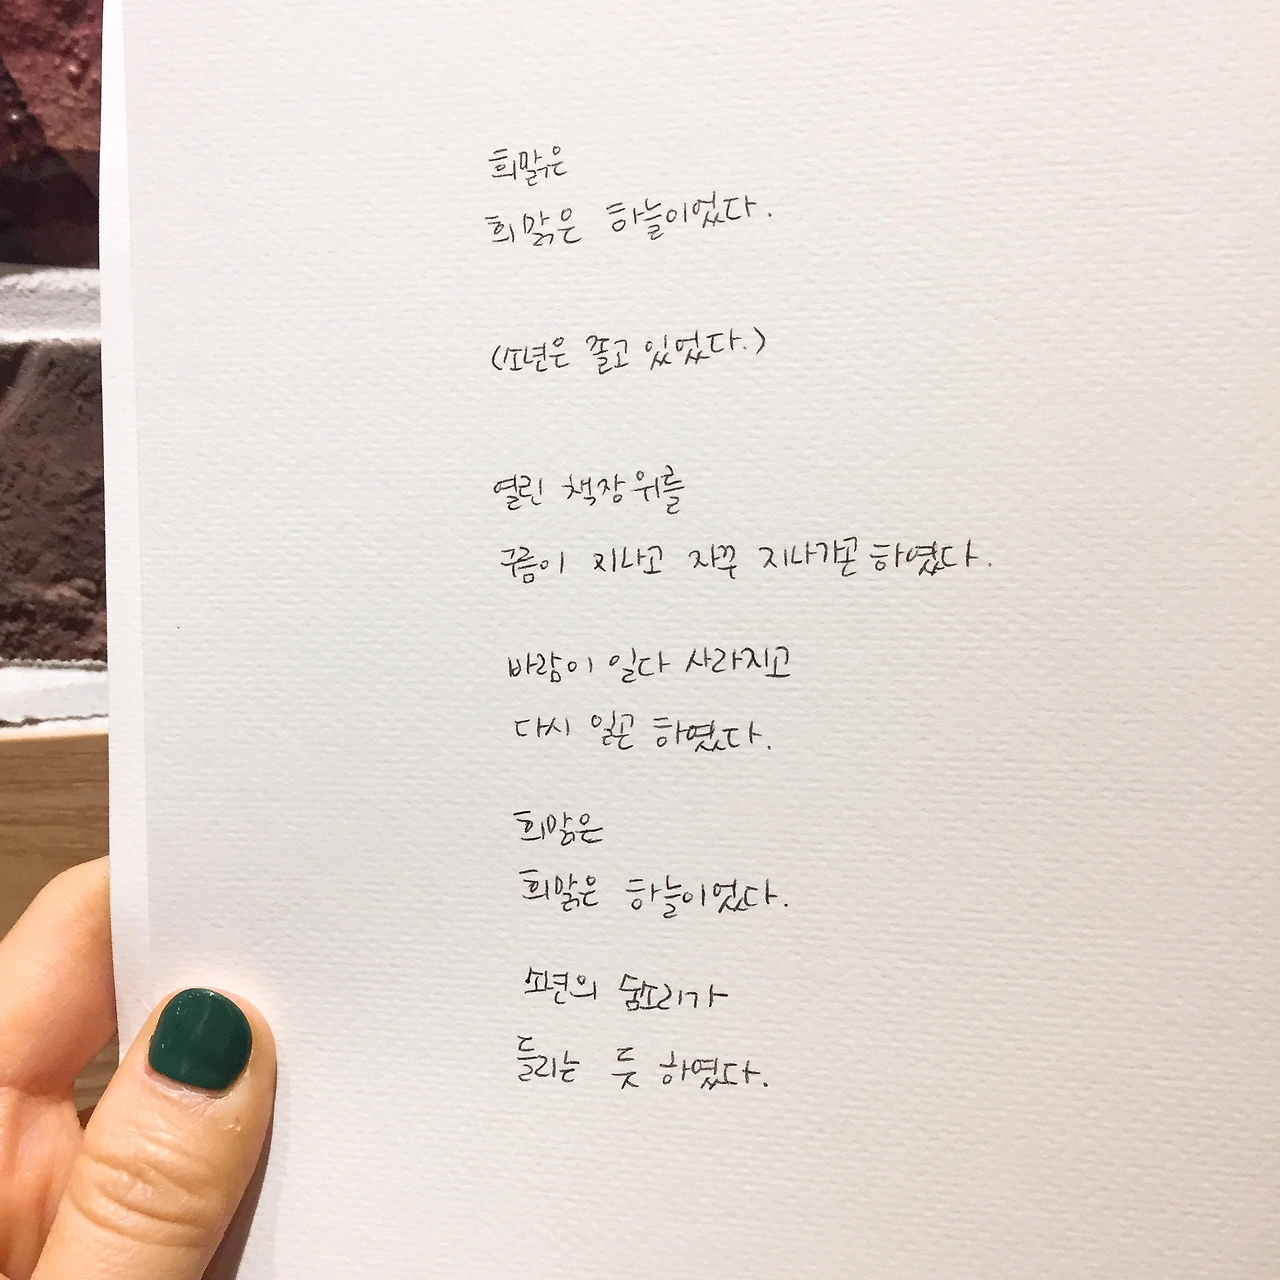 희맑은
희맑은 하늘이었다.
(소년은 졸고 있었다.)
열린 책장 위를
구름이 지나고 자꾸 지나가곤 하였다.
바람이 일다 사라지고
다시 일곤 하였다.
희맑은
희맑은 하늘이었다.
소년의 숨소리가
들리는 듯 하였다.